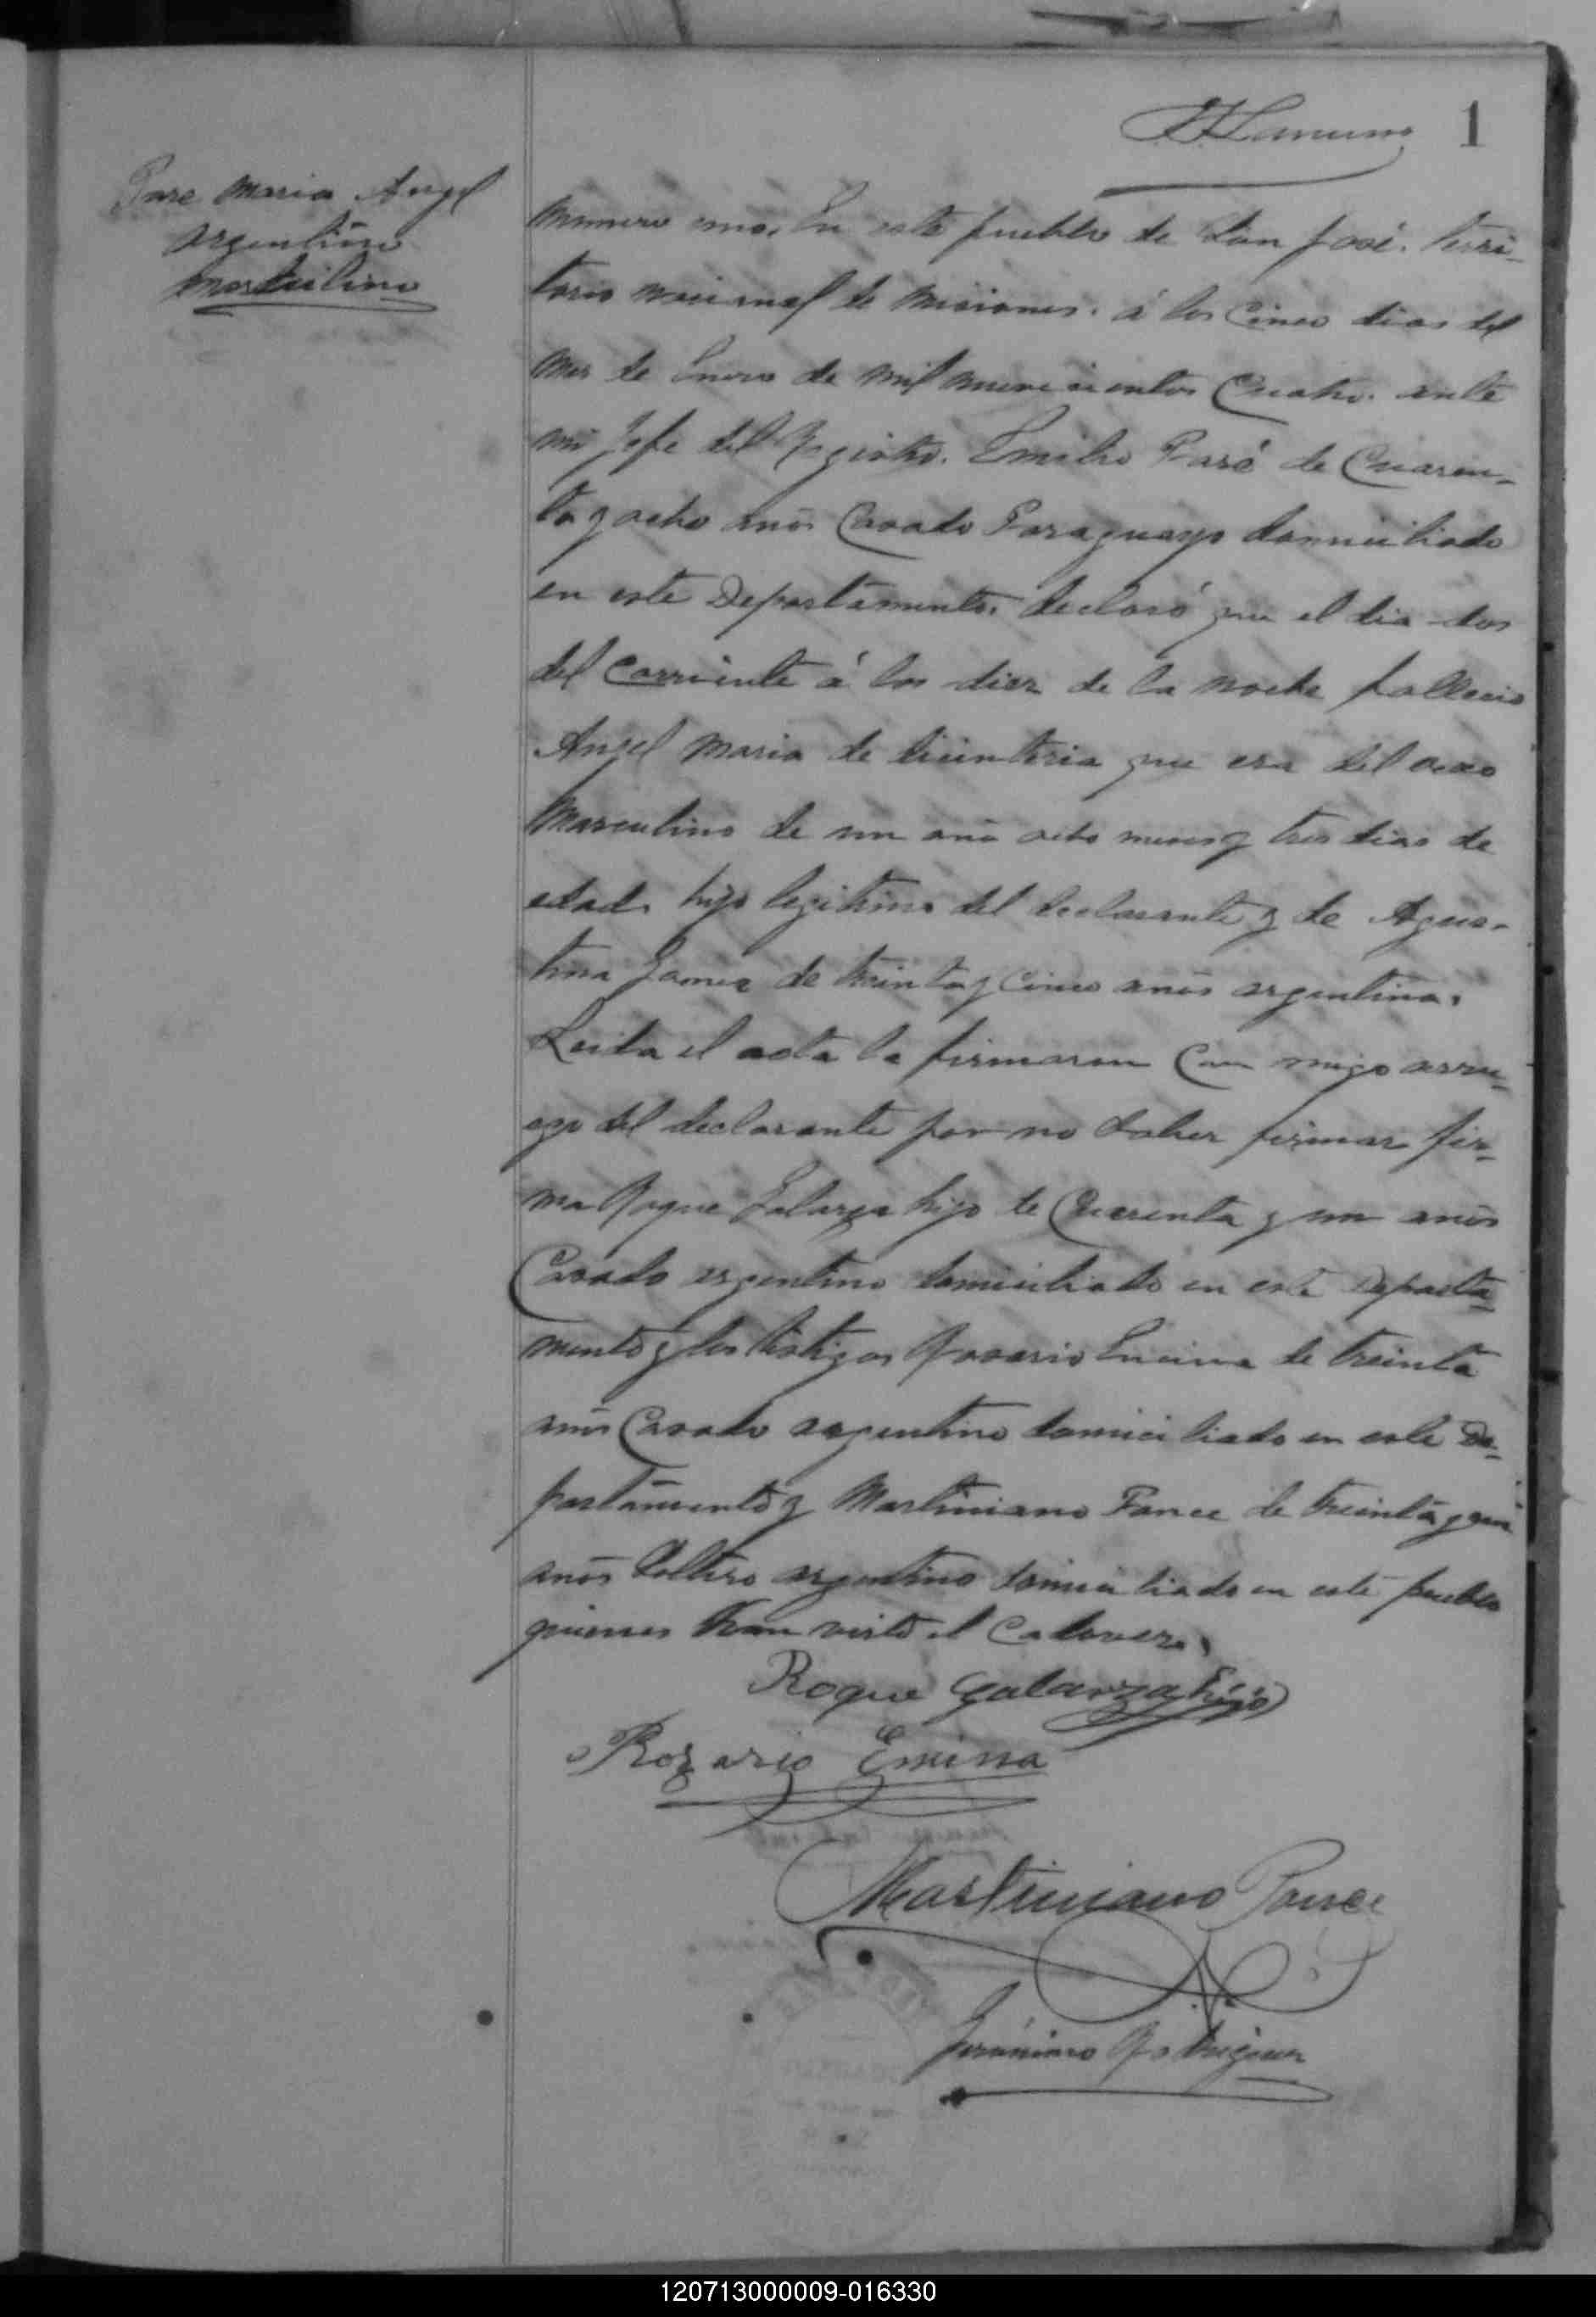 1
Maria Angel
argentino
masculino
numero uno. En este pueblo de San José. terri-
torio nacional de Misiones. á los Cinco dias del
mes de Enero de mil nuevecientos Cuatro. ante
mi Jefe del Registro. Emilio Paré de Cuaren-
ta y ocho años Casado Paraguayo domiciliado
en este Departamento. declaró que el dia dos
del Corriente á las diez de la noche fallecio
Angel Maria de que era del sexo
Masculino de un año ocho meses y tres dias de
edad. hijo legitimo del declarante y de Agus-
tina Gomez de treinta y Cinco años argentina.
Leida el acta la firmaron Con migo arru-
ego del declarante por no saber firmar fir-
ma Roque Galarza hijo de Cuarenta y un años
Casado argentino domiciliado en este Departa-
mento y los testigos Rosario Encina de treinta
años Casado argentino domiciliado en este De-
partamento y Martiniano Ponce de treinta y
años Soltero argentino domiciliado en este pueblo
quienes han visto el Cadaver.
Roque Galarza hijo
Rozario Encina
Martiniano Ponce
Gerónimo Rodriguez
120713000009-016330